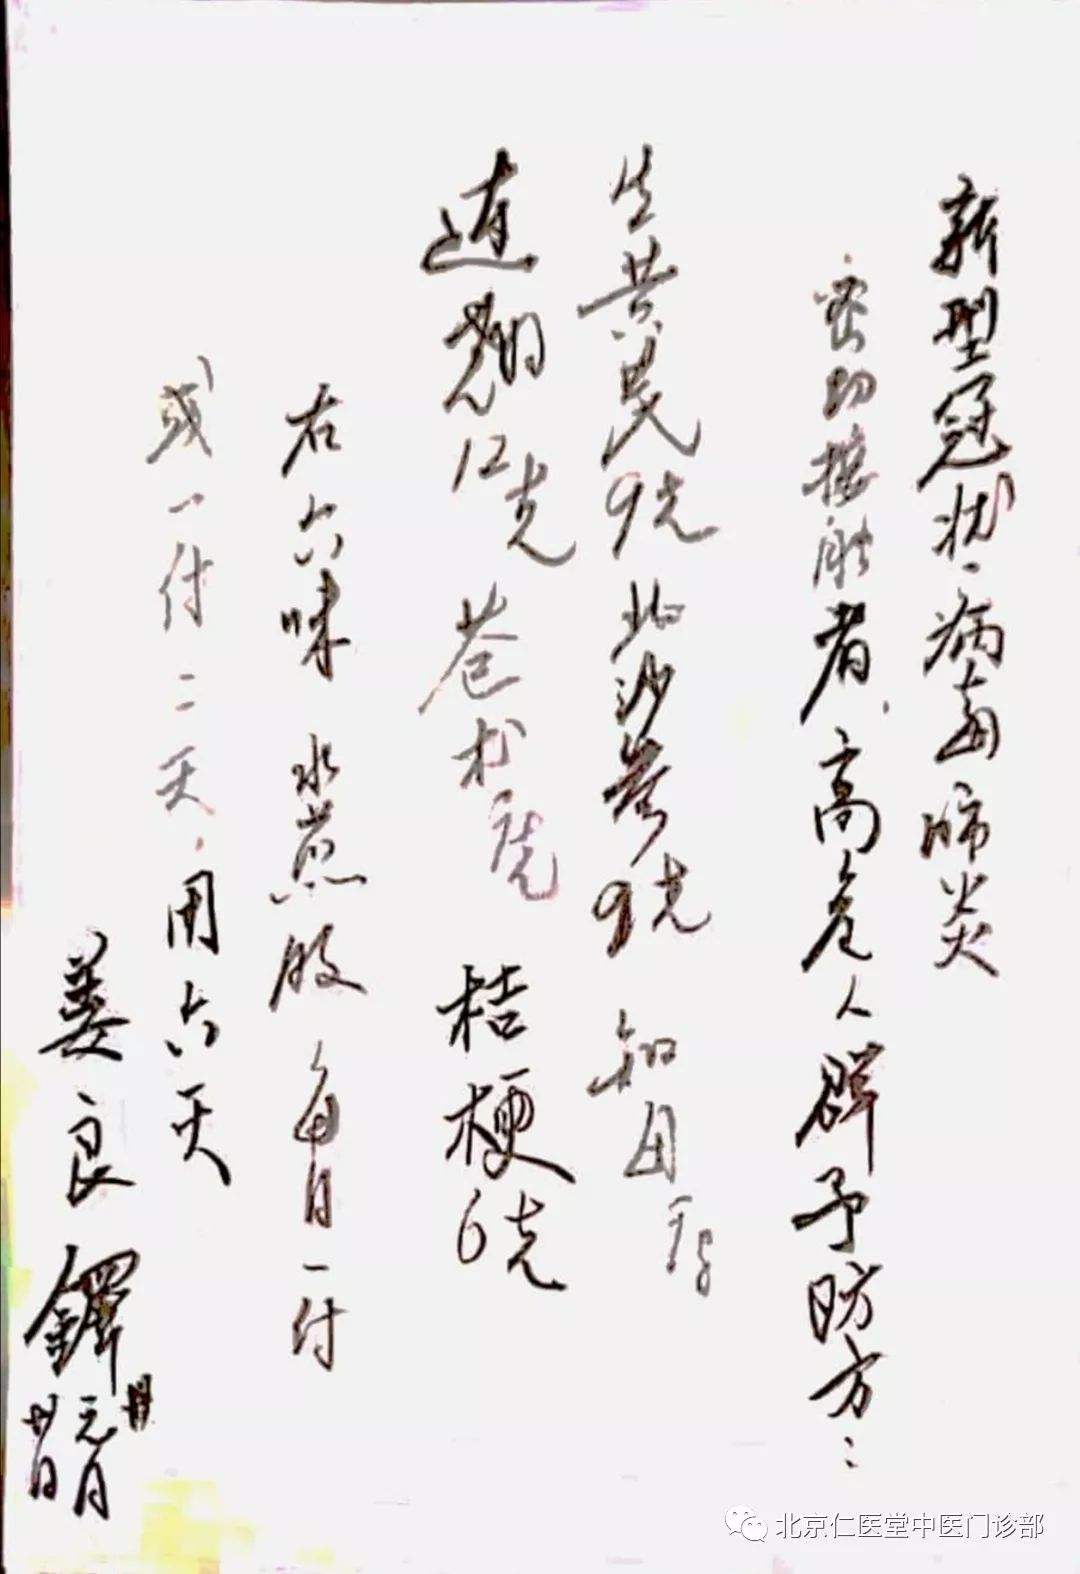 新型冠状病毒肺炎
密切接触者、高危人群予防方：
生黄芪9克 北沙参9克 知母
连翘12克 苍术 桔梗6克
右六味 水煎服 每日一付
或一付二天，用六天
姜良铎
元月
日
北京仁医堂中医门诊部